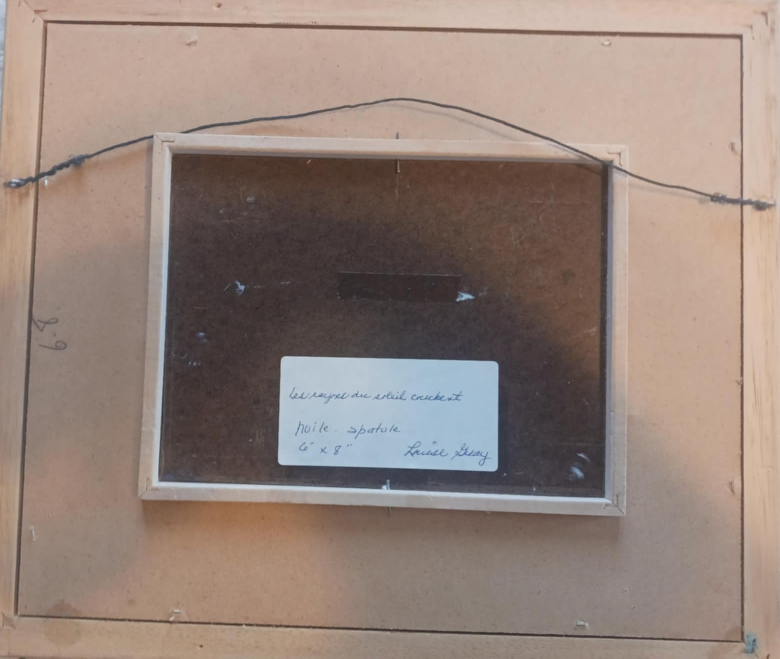 6.8.
Les rayons du soleil couchant
huile - spatule
6" x 8" Louise